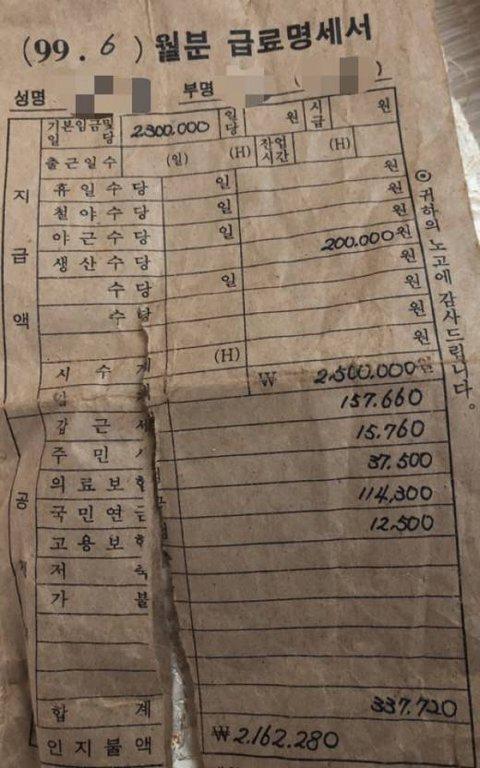 (99. 6) 월분 급료명세서
성명 부명 ( )
지급액
기본임금및 일당 2300.000 일당 원 시급 원
출근일수 (일) (H) 잔업시간 (H)
휴일수당 일 원
철야수당 일 원
야근수당 일 원
생산수당 200.000원
수당 일 원
수당 원
(H) 원
₩ 2,500,000원
공
갑근세 157.660
주민 15.760
의료보험 37.500
국민연금 114,300
고용보험 12.500
저축
가불
합계 337.720
인지불액 ₩2.162.280
◎ 귀하의 노고에 감사드립니다.